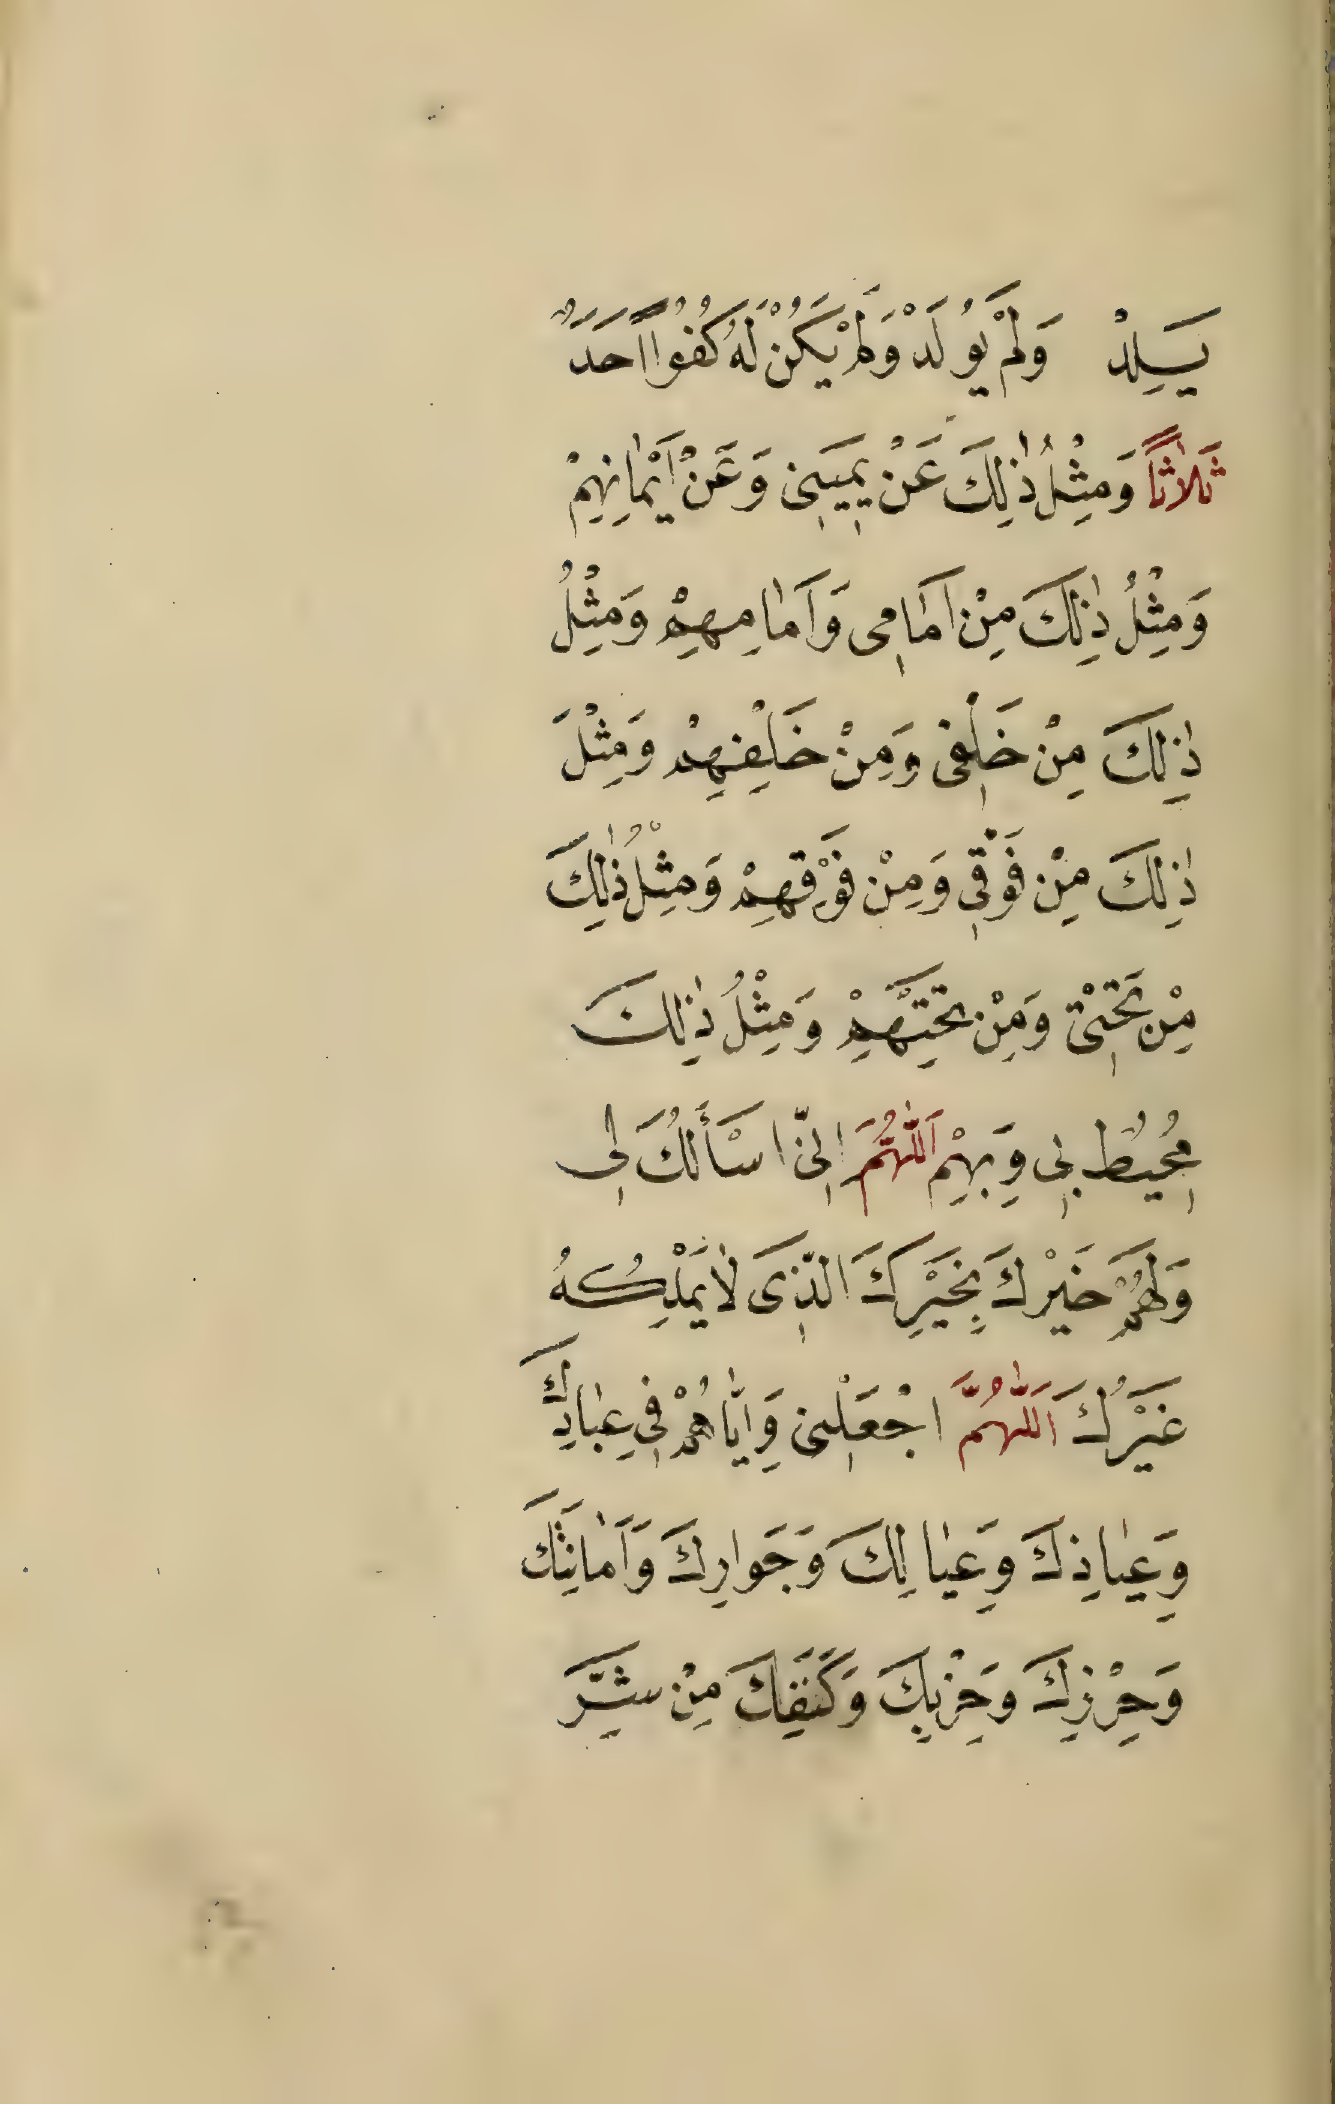 يَلِدْ وَلَمْ يُولَدْ وَلَمْ يَكُنْ لَهُ كُفُوًا اَحَدٌ
ثَلاثًا وَمِثْلُ ذٰلِكَ عَنْ يَمِيني وَعَنْ اَيْمٰانِهِمْ
وَمِثْلُ ذٰلِكَ مِنْ اَمٰامِي وَاَمٰامِهِمْ وَمِثْلُ
ذٰلِكَ مِنْ خَلْفي وَمِنْ خَلْفِهِمْ وَمِثْلَ
ذٰلِكَ مِنْ فَوْقي وَمِنْ فَوْقِهِمْ وَمِثْلُ ذٰلِكَ
مِنْ تَحْتي وَمِنْ تَحْتِهِمْ وَمِثْلُ ذٰلِكَ
مُحيطٌ بي وَبِهِمْ اَللّٰهُمَّ اِنّي اَسْأَلُكَ لي
وَلَهُمْ خَيْرَكَ بِخَيْرِكَ الَّذي لٰا يَمْلِكُهُ
غَيْرُكَ اَللّٰهُمَّ اجْعَلْني وَاِيّٰاهُمْ في عِبٰادِكَ
وَعِيٰاذِكَ وَعِيٰالِكَ وَجَوارِكَ وَاَمٰانَتِكَ
وَحِرْزِكَ وَحِزْبِكَ وَكَنَفِكَ مِنْ شَرِّ